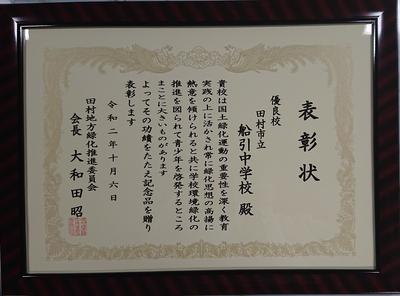 表彰状
優良校
田村市立
船引中学校 殿
貴校は国土緑化運動の重要性を深く教育
実践の上に活かされ常に緑化思想の高揚に
熱意を傾けられると共に学校環境緑化の
推進を図られて青少年を啓発するところ
まことに大きいものがあります
よってその功績をたたえ記念品を贈り
表彰します
令和二年十月六日
田村地方緑化推進委員会
会長 大和田 昭